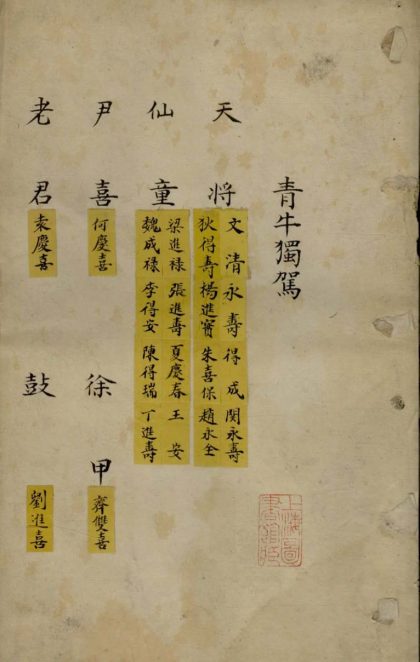 青牛獨駕
天將 文清 永壽 得成 閔永壽
狄得壽 楊進寳 朱喜保 趙永全
仙童 梁進禄 張進壽 夏慶春 王安
魏成禄 李得安 陳得瑞 丁進壽
尹喜 何慶喜 徐甲 齊雙喜
老君 袁慶喜 鼓 劉進喜
上海圖
書館藏